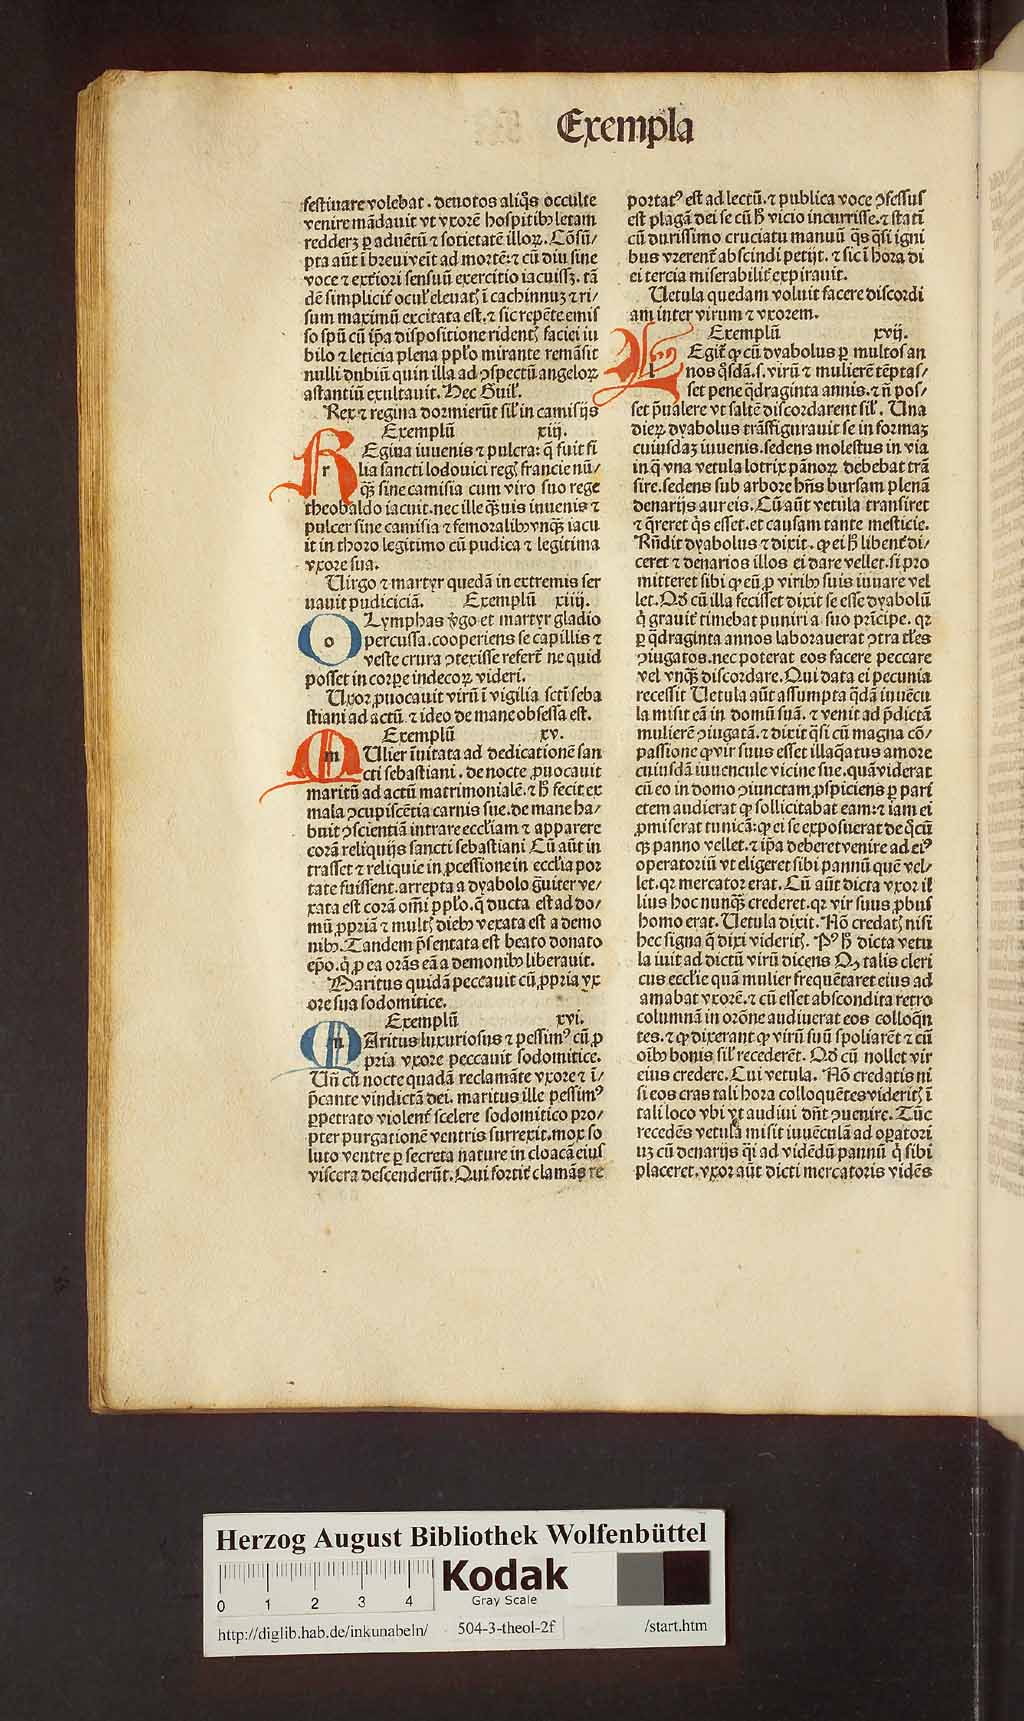 Exempla
festiuare volebat. denotos aliq̃s occulte
venire mãdauit vt vxorẽ hospitibꝫ letam
redderꝫ ꝑ aduẽtũ ⁊ sotietatẽ illoꝝ. Cõsũ/
pta aũt ĩ breui veĩt ad mortẽ:⁊ cũ diu sine
voce ⁊ exťiori sensuũ exercitio iacuissꝫ. tã
dẽ simpliciť ocuľ eleuatꝭ ĩ cachinnuꝫ ⁊ ri/
sum maximũ excitata est.⁊ sic repẽte emis
so spũ cũ ip̃a dispositione ridentꝭ faciei iu
bilo ⁊ leticia plena ppľo mirante remãsit
nulli dubiũ quin illa ad ↄspectũ angeloꝝ
astantiũ exultauit. Hec Guiľ.
Rex ⁊ regina dormierũt siľ in camisijs
Exemplũ xiij.
REgina iuuenis ⁊ pulcra: q̃ fuit fi
lia sancti lodouici regꝭ francie nũ/
qꝫ̃ sine camisia cum viro suo rege
theobaldo iacuit. nec ille qꝫ̃uis iuuenis ⁊
pulcer sine camisia ⁊ femoralibꝫ vnqꝫ̃ iacu
it in thoro legitimo cũ pudica ⁊ legitima
vxore sua.
Uirgo ⁊ martyr quedã in extremis ser
uauit pudiciciã. Exemplũ xiiij.
OLymphas v̾go et martyr gladio
percussa. cooperiens se capillis ⁊
veste crura ↄtexisse referť ne quid
posset in corꝑe indecoꝝ videri.
Uxor ꝓuocauit virũ ĩ vigilia sctĩ seba
stiani ad actũ. ⁊ ideo de mane obsessa est.
Exemplũ xv.
MUlier ĩuitata ad dedicationẽ san
cti sebastiani. de nocte ꝓuocauit
maritũ ad actũ matrimonialẽ.⁊ h̃ fecit ex
mala ↄcupiscẽtia carnis sue. de mane ha/
buit ↄscientiã intrare eccľiam ⁊ apparere
corã reliquijs sancti sebastiani Cũ aũt in
trasset ⁊ reliquie in ꝓcessione in eccľia por
tate fuissent. arrepta a dyabolo g̃uiter ve/
xata est corã om̃i ppľo. q̃ ducta est ad do/
mũ ꝓpriã ⁊ multꝭ diebꝫ vexata est a demo
nibꝫ. Tandem p̃sentata est beato donato
ep̃o. q̓ ꝓ ea orãs eã a demonibꝫ liberauit.
Maritus quidã peccauit cũ ꝓpria vx
ore sua sodomitice.
Exemplũ xvi.
MAritus luxuriosus ⁊ pessimꝰ cũ ꝓ
pria vxore peccauit sodomitice.
Uñ cũ nocte quadã reclamãte vxore ⁊ ĩ/
p̃cante vindictã dei. maritus ille pessimꝰ
ꝑpetrato violenť scelere sodomitico pro/
pter purgationẽ ventris surrexit. mox so
luto ventre ꝑ secreta nature in cloacã eius
viscera descenderũt. Qui fortiť clamãs re
portatꝰ est ad lectũ.⁊ publica voce ↄfessus
est plagã dei se cũ h̃ vicio incurrisse.⁊ statĩ
cũ durissimo cruciatu manuũ q̃s q̃si igni
bus vrerenť abscindi petijt. ⁊ sic ĩ hora di
ei tercia miserabiliť expirauit.
Uetula quedam voluit facere discordi
am inter virum ⁊ vxorem.
Exemplũ xvij.
LEgiť ꝙ cũ dyabolus ꝑ multos an
nos q̃sdã.s. virũ ⁊ mulierẽ tẽptas/
set pene q̃draginta annis.⁊ ñ pos/
set p̃ualere vt saltẽ discordarent siľ. Una
dieꝝ dyabolus trãsfigurauit se in formaꝫ
cuiusdaꝫ iuuenis. sedens molestus in via
in q̃ vna vetula lotrix pãnoꝝ debebat trã
sire. sedens sub arbore hñs bursam plenã
denarijs aureis. Cũ aũt vetula transiret
⁊ q̃reret q̓s esset. et causam tante mesticie.
Rñdit dyabolus ⁊ dixit. ꝙ ei h̃ libenť di/
ceret ⁊ denarios illos ei dare vellet. si pro
mitteret sibi ꝙ eũ ꝓ viribꝫ suis iuuare vel
let. Qď cũ illa fecisset dixit se esse dyabolũ
q̓ grauiť timebat puniri a suo prĩcipe. qꝛ
ꝑ q̃draginta annos laborauerat ↄtra tľes
ↄiugatos. nec poterat eos facere peccare
vel vnqꝫ̃ discordare. Qui data ei pecunia
recessit Uetula aũt assumpta q̃dã iuuẽcu
la misit eã in domũ suã. ⁊ venit ad p̃dictã
mulierẽ ↄiugatã. ⁊ dixit q̃si cũ magna cõ/
passione ꝙ vir suus esset illaq̃atus amore
cuiusdã iuuencule vicine sue. quã viderat
cũ eo in domo ↄiunctam ꝓspiciens ꝑ pari
etem audierat ꝙ sollicitabat eam:⁊ iam ei
ꝓmiserat tunicã: ꝙ ei se exposuerat de q̓cũ
qꝫ panno vellet. ⁊ ip̃a deberet venire ad eiꝰ
operatoriũ vt eligeret sibi pannũ quẽ vel/
let. qꝛ mercator erat. Cũ aũt dicta vxor il
lius hoc nunqꝫ̃ crederet. qꝛ vir suus ꝓbus
homo erat. Uetula dixit. Nõ credatꝭ nisi
hec signa q̃ dixi videritꝭ. Pꝰ h̃ dicta vetu
la iuit ad dictũ virũ dicens Qꝫ talis cleri
cus eccľie quã mulier frequẽtaret eius ad
amabat vxorẽ.⁊ cũ esset abscondita retro
columnã in orõne audiuerat eos colloq̃n
tes. ⁊ ꝙ dixerant ꝙ virũ suũ spoliarẽt ⁊ cũ
oĩbꝫ bonis siľ recederẽt. Qď cũ nollet vir
eius credere. Cui vetula. Nõ credatis ni
si eos cras tali hora colloquẽtes videritꝭ ĩ
tali loco vbi vt audiui dñt ↄuenire. Tũc
recedẽs vetula misit iuuẽculã ad oꝑatori
uꝫ cũ denarijs q̓si ad vidẽdũ pannũ q̓ sibi
placeret. vxor aũt dicti mercatoris vidẽs
Herzog August Bibliothek Wolfenbüttel
0 1 2 3 4
Kodak
Gray Scale
http://diglib.hab.de/inkunabeln/ 504-3-theol-2f /start.htm